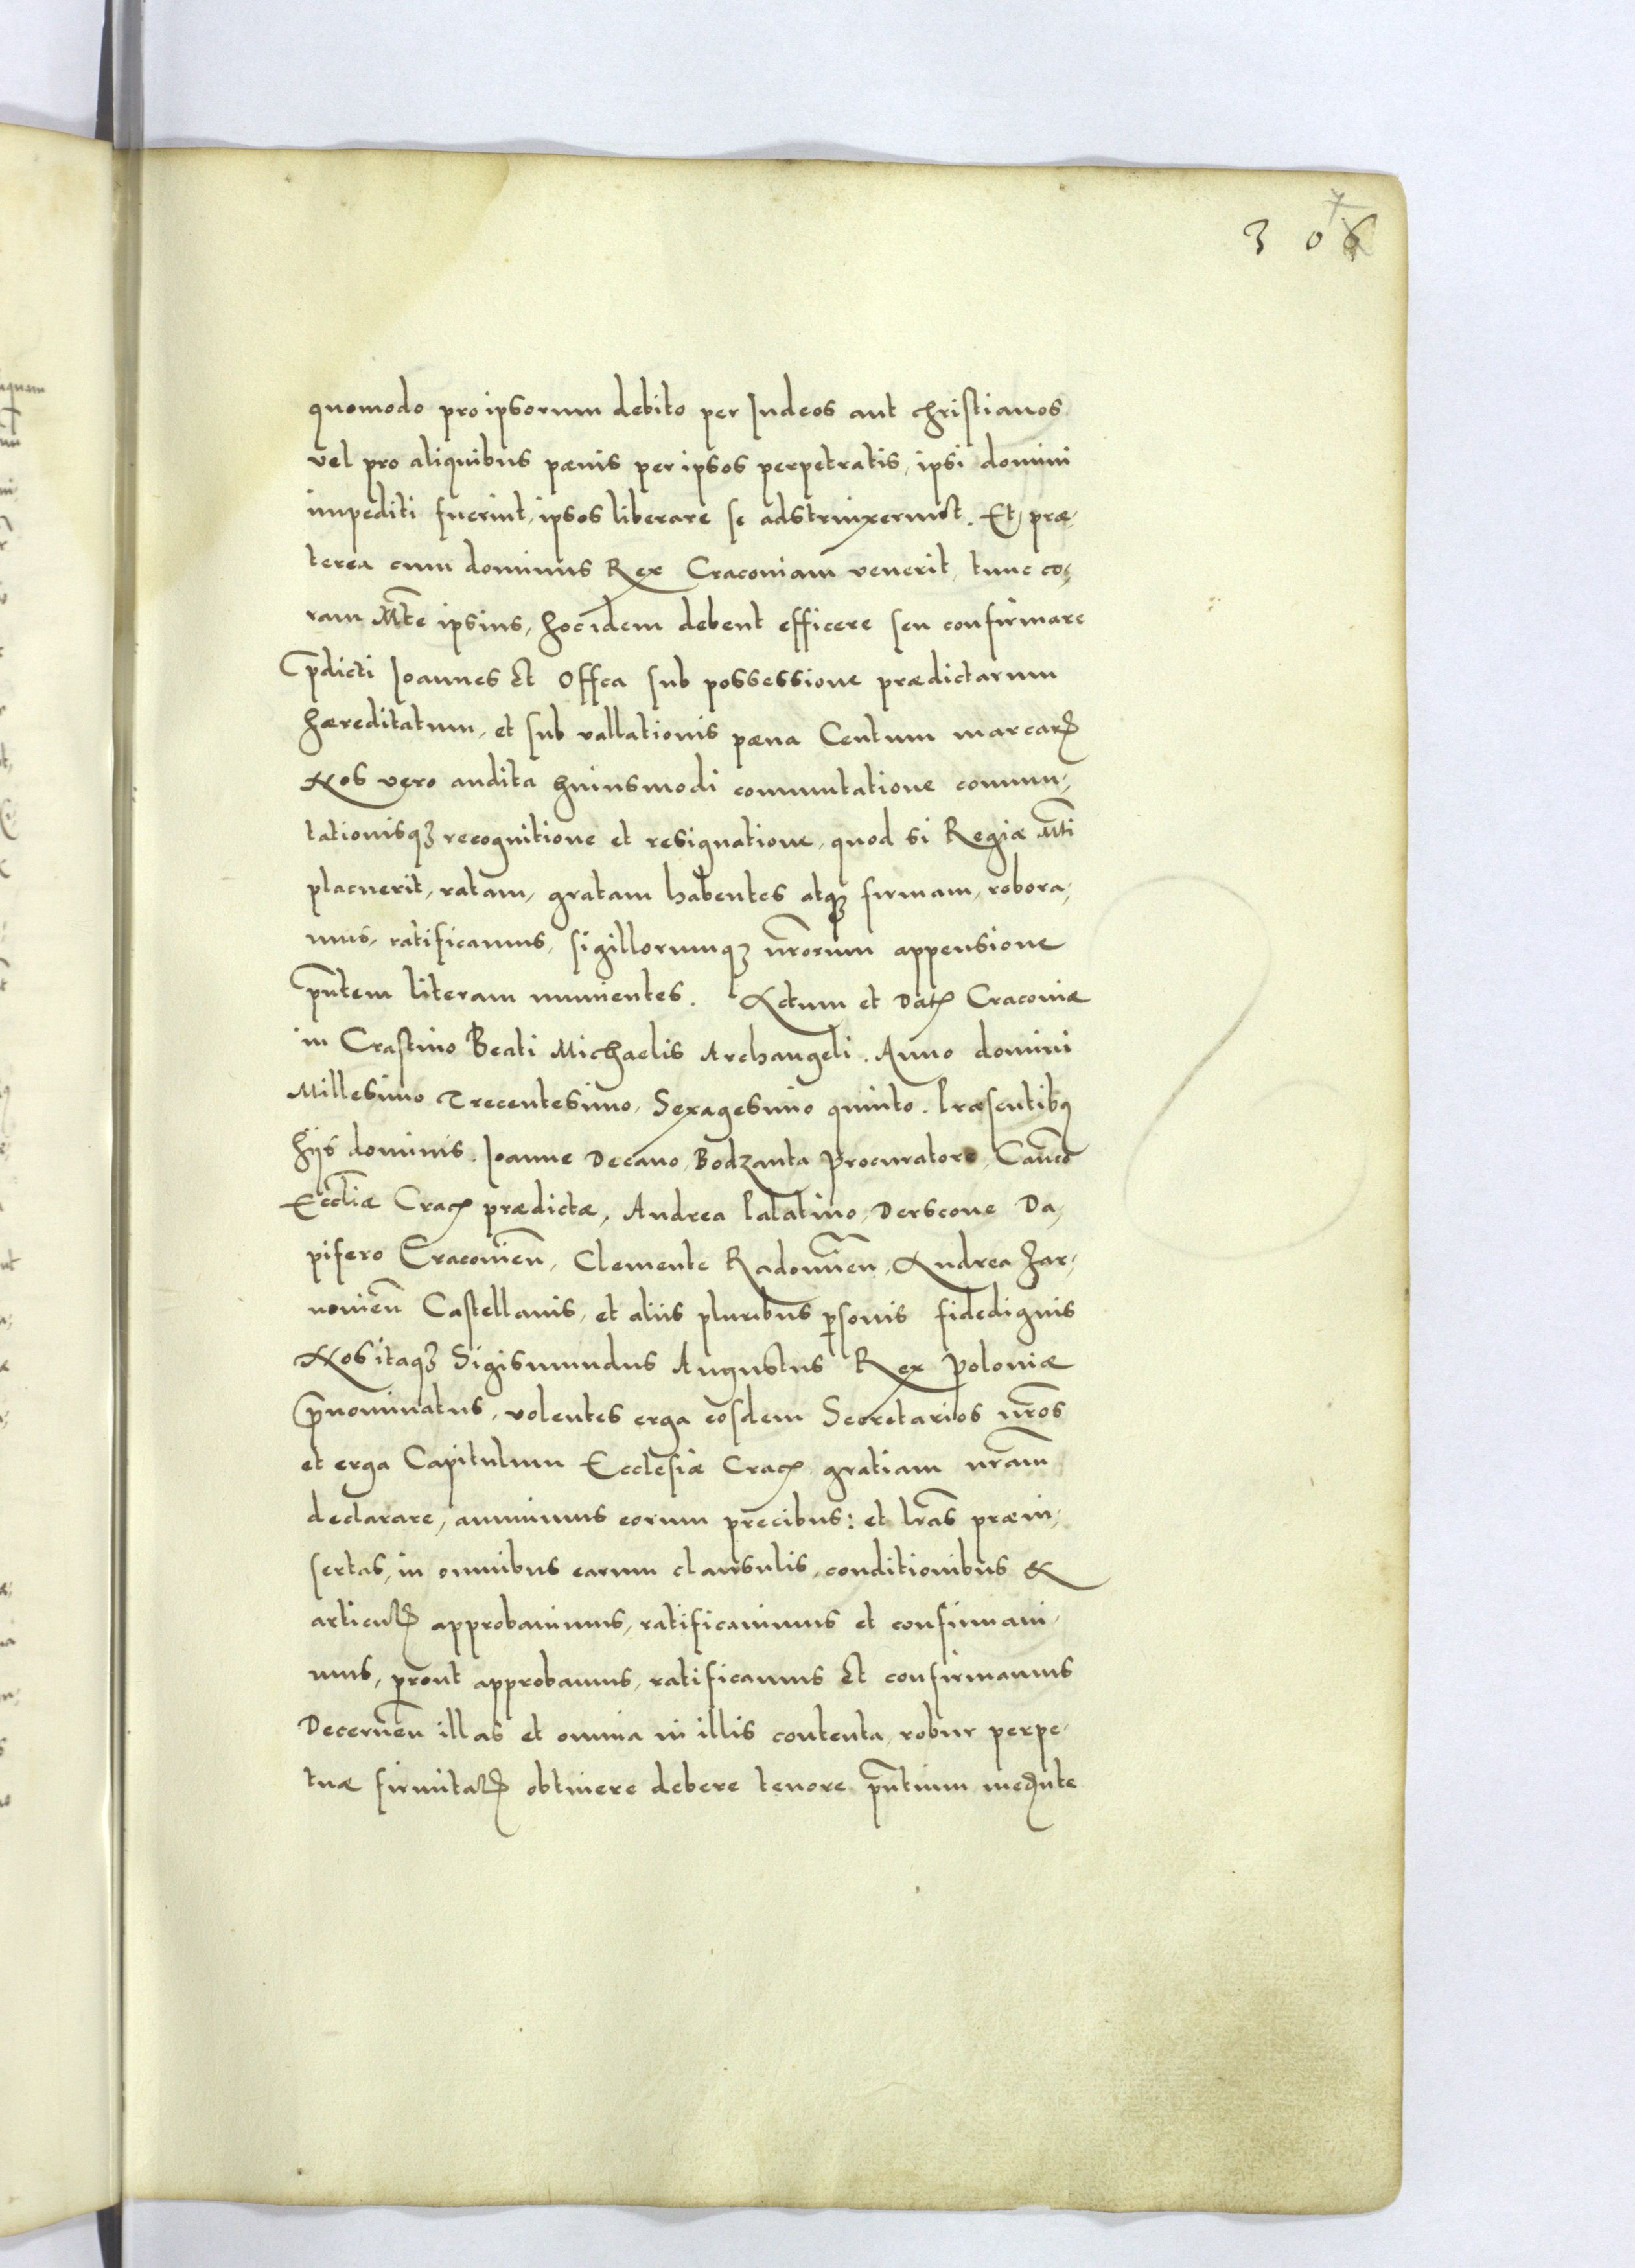 306 7
quomodo pro ipsorum debito per Iudeos aut christianos
vel pro aliquibus pænis per ipsos perpetratis, ipsi domini
impediti fuerint, ipsos liberare se adstrinxerunt. Et præ,
terea cum dominus Rex Cracoviam venerit, tunc co,
ram M̃te ipsius, hoc idem debent efficere seu confirmare
p̃dicti Ioannes Et Offca sub possessione prædictarum
hæreditatum, et sub vallationis pæna Centum marcarꝝ
Nos vero audita huiusmodi commutatione commu,
tationisqꝫ recognitione et resignatione, quod si Regiæ M̃ti
placuerit, ratam, gratam habentes atqꝫ firmam, robora,
mus, ratificamus, sigillorumqꝫ nr̃orum appensione
pñtem literam munientes. Actum et Datꝫ Cracoviæ
in Crastino Beati Michaelis Archangeli. Anno domini
Millesimo Trecentesimo, Sexagesimo quinto. Præsentibꝫ
hijs dominis. Ioanne Decano, Bodzanta Procuratore, Cañco
Eccl̃iæ Cracꝫ prædictæ, Andrea Palatino, Derscone Da,
pifero Cracovieñ, Clemente Radomieñ, Andrea Zar,
novieñ Castellanis, et aliis pluribus ꝑsonis fidedignis
Nos itaqꝫ Sigismundus Augustus Rex Poloniæ
p̃nominatus, volentes erga eosdem Secretarios nr̃os
et erga Capitulum Ecclesiæ Cracꝫ gratiam nr̃am
declarare, annuimus eorum precibus: et lr̃as præin,
sertas, in omnibus earum clausulis, conditionibus &
articulꝭ approbavimus, ratificavimus et confirmavi,
mus, prout approbamus, ratificamus Et confirmamus
Decerneñ illas et omnia in illis contenta, robur perpe,
tuæ firmitatꝭ obtinere debere tenore pñtium mediñte